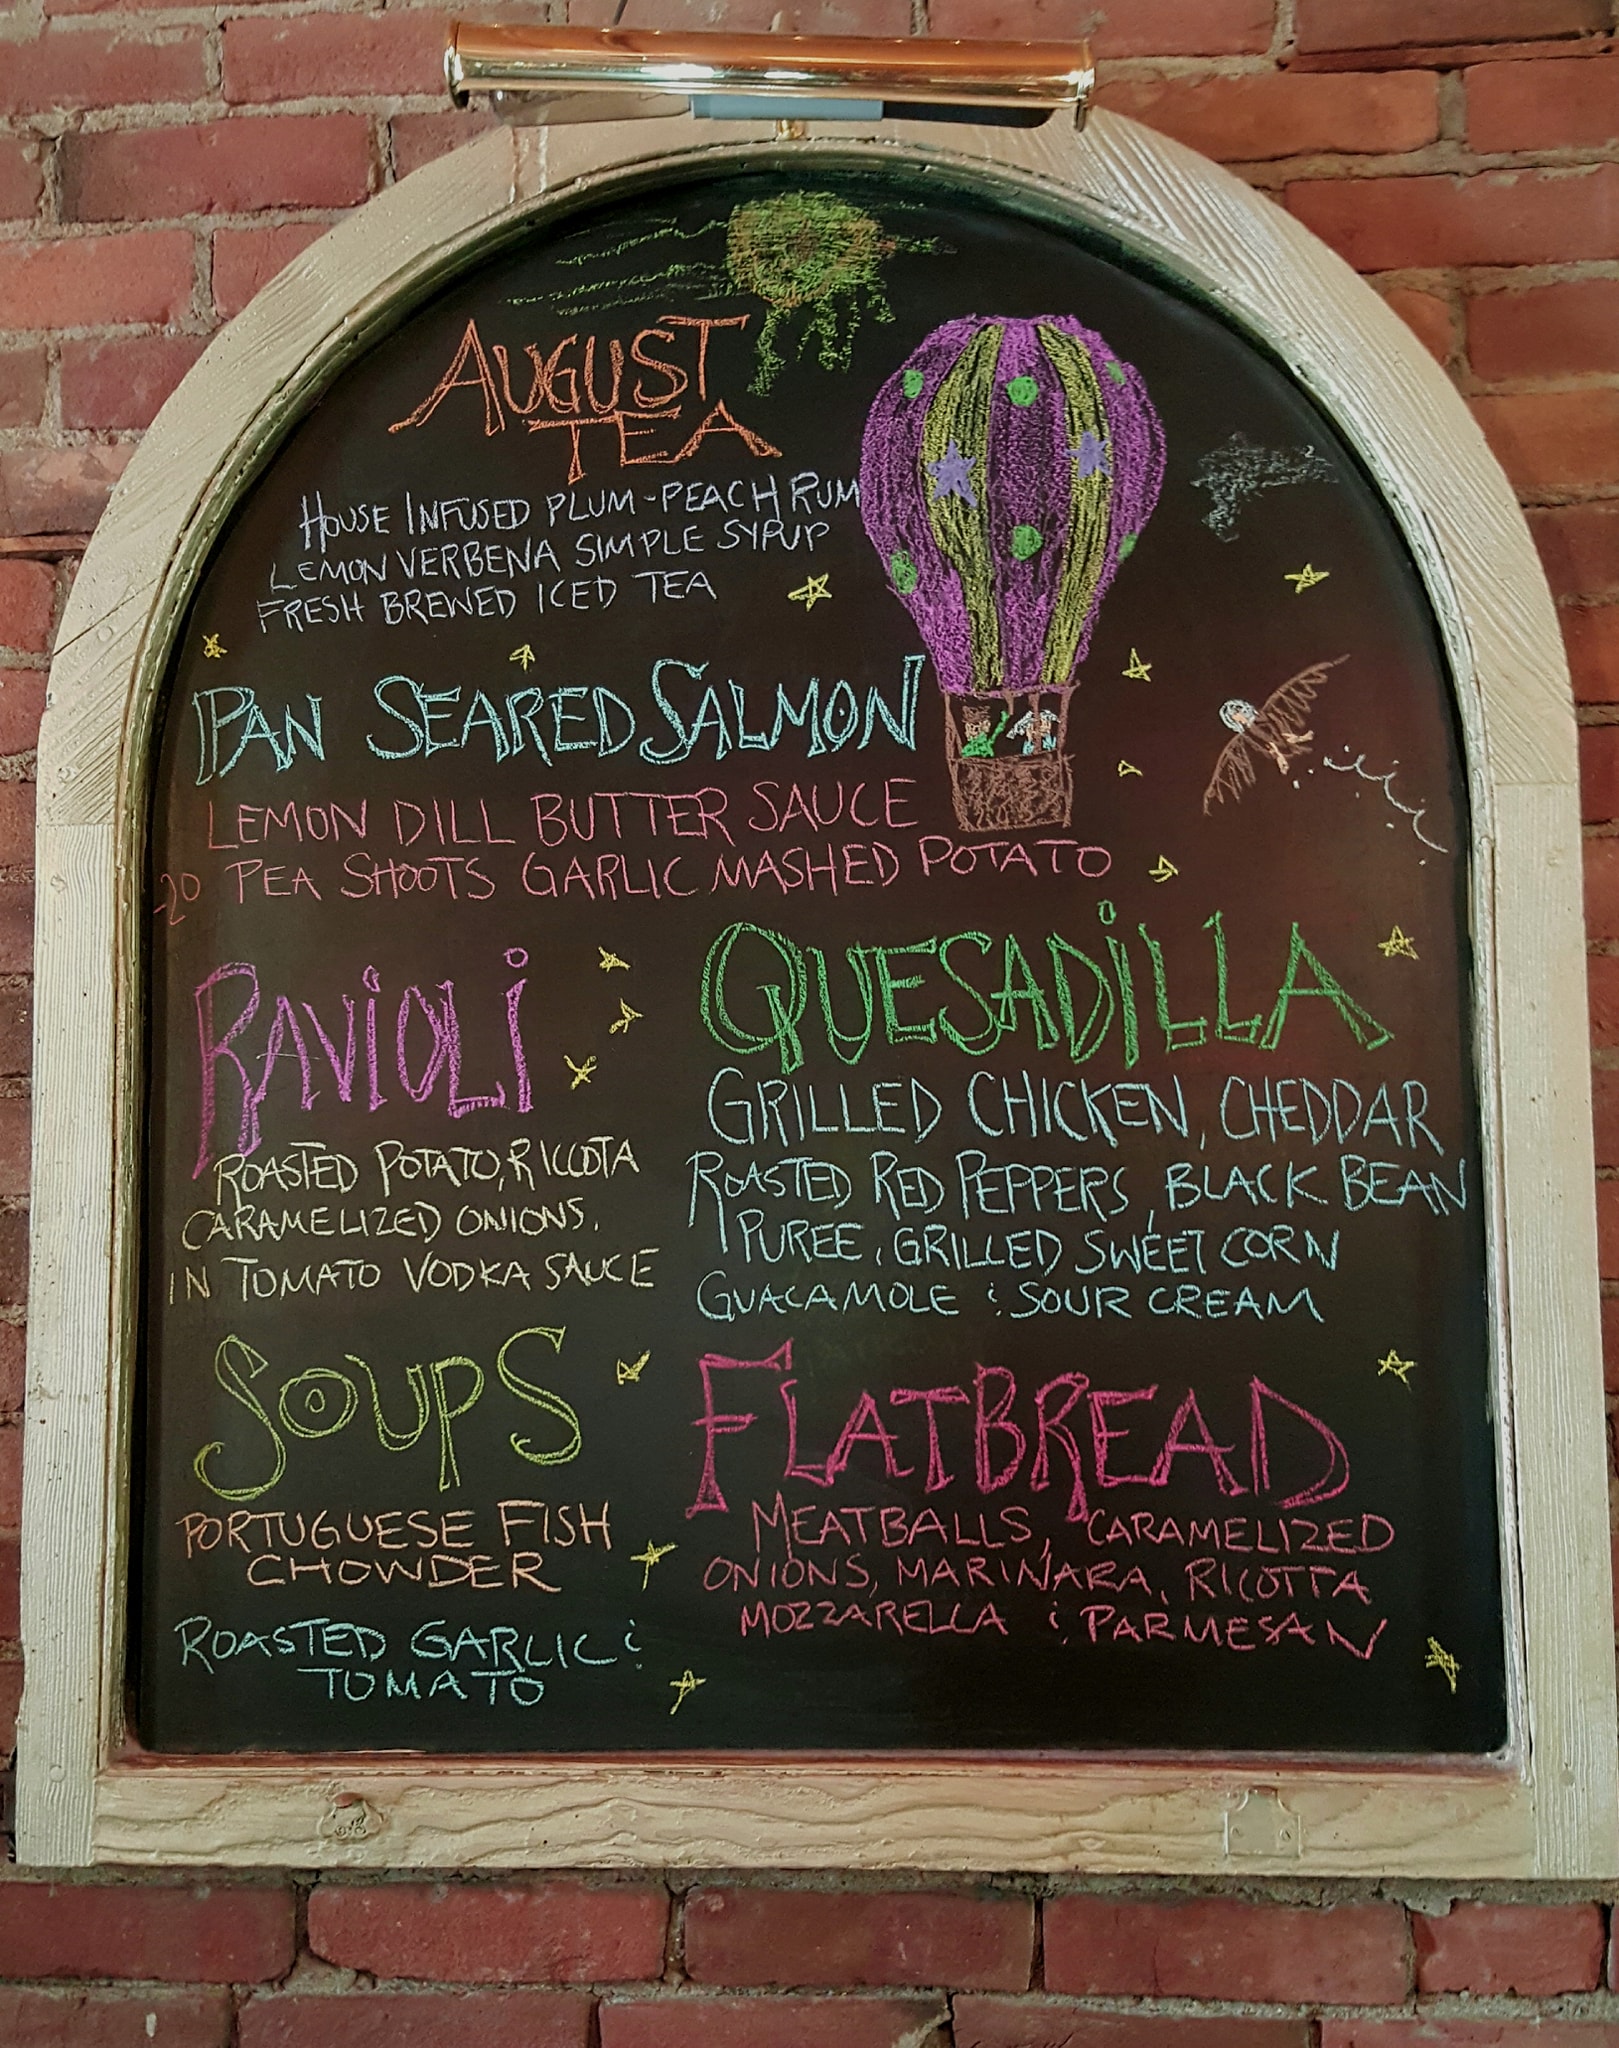 AUGUST
TEA
HOUSE INFUSED PLUM-PEACH RUM
LEMON VERBENA SIMPLE SYRUP
FRESH BREWED ICED TEA
PAN SEARED SALMON
LEMON DILL BUTTER SAUCE
-20 PEA SHOOTS GARLIC MASHED POTATO
RAVIOLI
ROASTED POTATO, RICCOTA
CARAMELIZED ONIONS,
IN TOMATO VODKA SAUCE
QUESADILLA
GRILLED CHICKEN, CHEDDAR
ROASTED RED PEPPERS, BLACK BEAN
PUREE, GRILLED SWEET CORN
GUACAMOLE & SOUR CREAM
SOUPS
PORTUGUESE FISH
CHOWDER
ROASTED GARLIC &
TOMATO
FLATBREAD
MEATBALLS, CARAMELIZED
ONIONS, MARINARA, RICOTTA
MOZZARELLA & PARMESAN